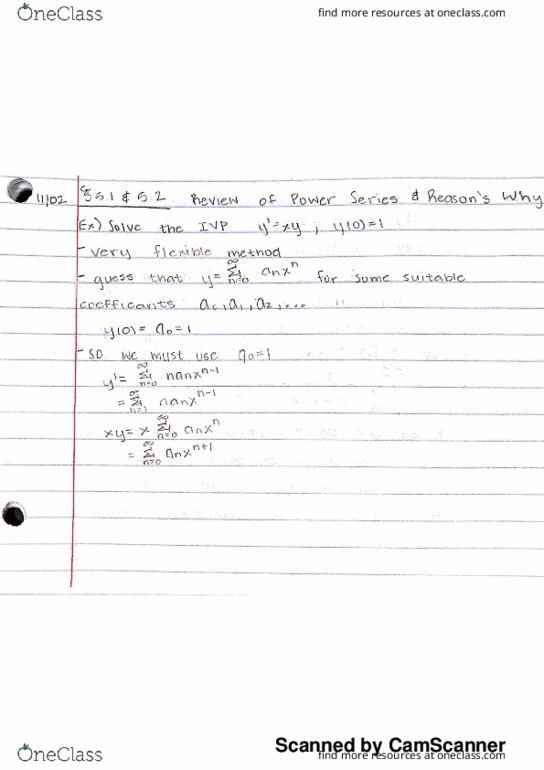 OneClass find more resources at oneclass.com
11/02 §5.1 & 5.2 Review of Power Series & Reason's Why
Ex) Solve the IVP y'=xy, y(0)=1
- very flexible method
- guess that y=∑_{n=0}^{∞} anx^n for some suitable
coefficants a0,a1,a2,...
y(0)=a0=1
- so we must use a0=1
y'=∑_{n=0}^{∞} nanx^{n-1}
=∑_{n=1}^{∞} nanx^{n-1}
xy=x∑_{n=0}^{∞} anx^n
=∑_{n=0}^{∞} anx^{n+1}
Scanned by CamScanner
OneClass find more resources at oneclass.com